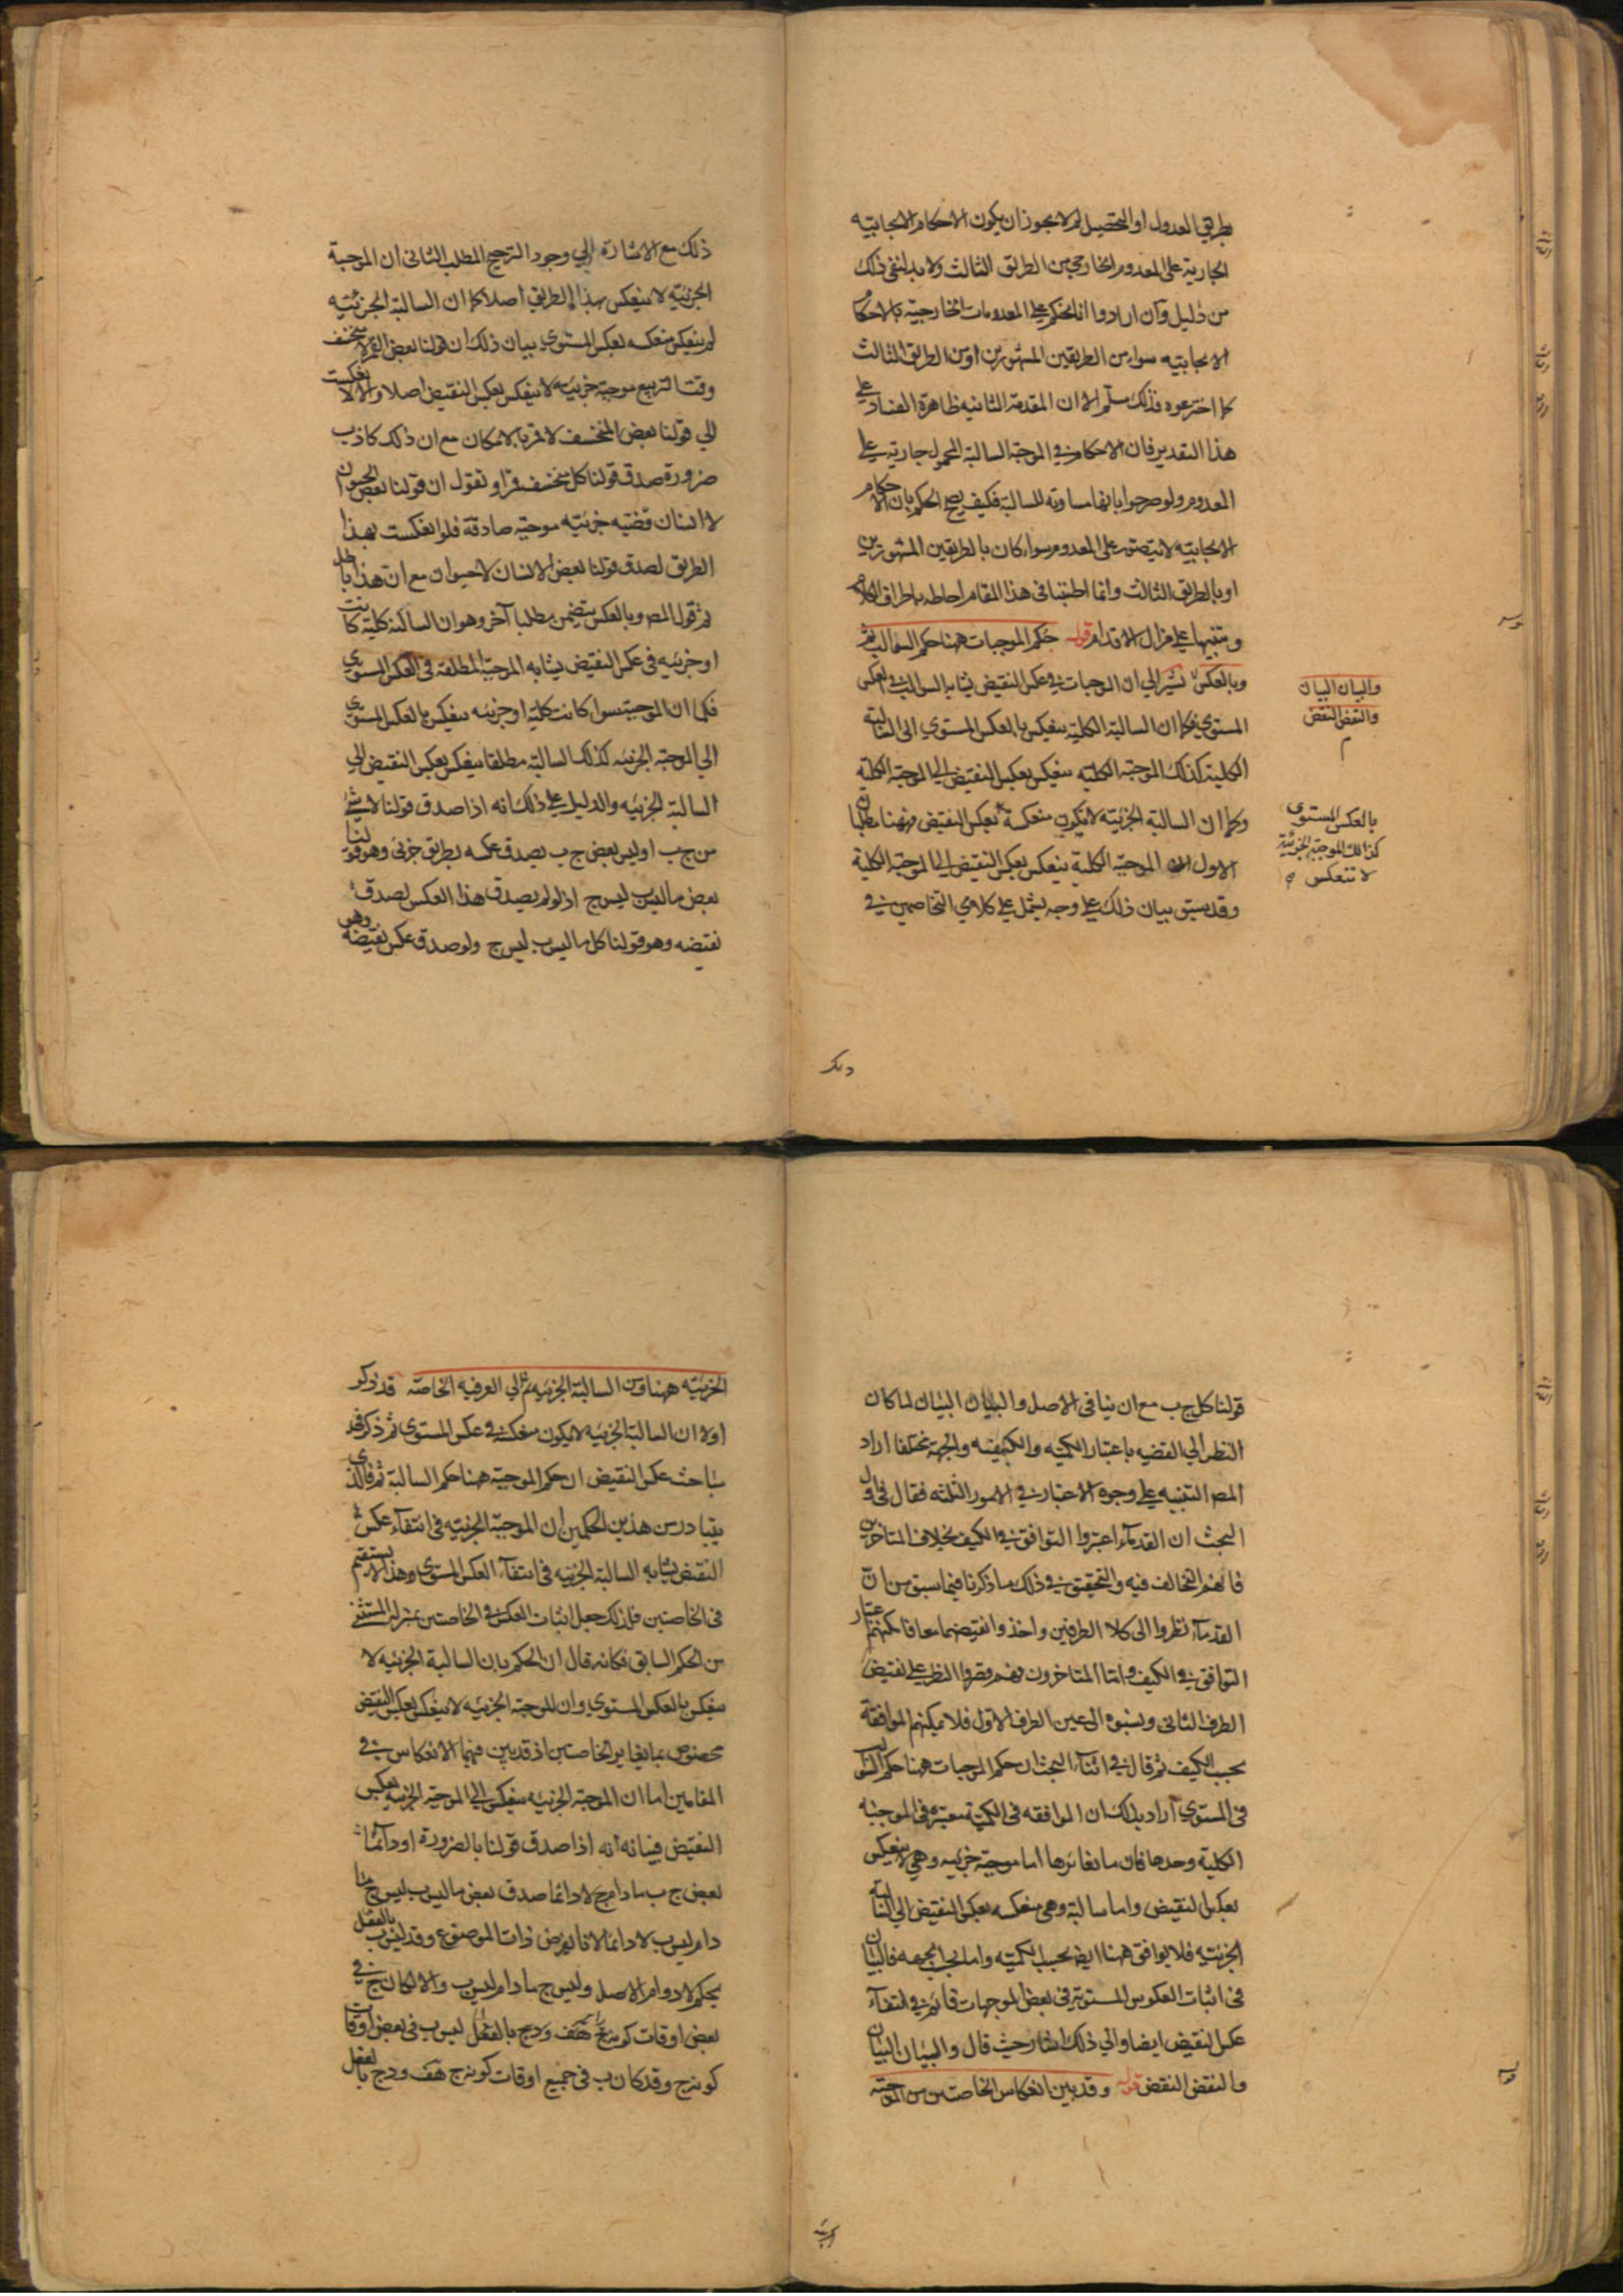 بطريق العدول او التحصيل لم لا يجوز ان يكون الاحكام الايجابية
الجارية على المعدوم الخارجي من الطريق الثالث ولا بد لنفي ذلك
من دليل وآن ارادوا انا نحكم على المعدومات الخارجية بالاحكام
الايجابيه سواء من الطريقين المشهورين او من الطريق الثالث
كما اخترعوه فذلك مسلّم الا ان المقدمة الثانيه ظاهرة الفساد على
هذا التقدير فان الاحكام في الموجبة السالبة المحمول جارية على
المعدوم ولو صرحوا بانها مساوية للسالبة فكيف يصح الحكم بان الاحكام
الايجابيه لا يتصور على المعدوم سواء كان بالطريقين المشهورين
او بالطريق الثالث وانما اطنبنا في هذا المقام احاطه باطراف الكلام
وتنبيها على مزال الاقدام قوله حكم الموجبات ههنا حكم السوالب ثم
وبالعكس نشير الي ان الموجبات في عكس النقيض يشابه السوالب في العكس
المستوي فكما ان السالبة الكلية ينعكس بالعكس المستوي الى السالبة
الكلية كذلك الموجبة الكليه ينعكس بعكس النقيض الى الموجبة الكليه
وكما ان السالبة الجزئية لا تكون منعكسة بعكس النقيض فههنا مطلبان
الاول ان الموجبة الكلية ينعكس بعكس النقيض الى الموجبة الكلية
وقد سبق بيان ذلك على وجه يشمل على كلامي المتخاصمين في
والبيان البيان
والنقض النقض
م
بالعكس المستوى
كذالك الموجبة الجزئية
لا تنعكس
ذلك مع الاشارة الي وجود الترجيح المطلب الثاني ان الموجبة
الجزئيه لا ينعكس بهذا الطريق اصلا كما ان السالبة الجزئيه
لم ينعكس منعكسه بعكس المستوي بيان ذلك ان قولنا بعض القمر لا منخسف
وقت التربيع موجبة جزئيه لا ينعكس بعكس النقيض اصلا والا لانعكست
الي قولنا بعض المنخسف لا قمر بالامكان مع ان ذلك كاذب
ضرورة صدق قولنا كل منخسف قمر او نقول ان قولنا بعض الحيوان
لا انسان قضيه جزئيه موجبه صادقة فلو انعكست بهذا
الطريق لصدق قولنا بعض الانسان لا حيوان مع ان هذا باطل
ثم قول المص وبالعكس يتضمن مطلبا آخر وهو ان السالبة كلية كانت
او جزئيه في عكس النقيض يشابه الموجبة المطلقه في العكس المستوي
فكما ان الموجبة سواء كانت كلية او جزئيه ينعكس بالعكس المستوي
الي الموجبة الجزئيه كذلك السالبة مطلقا ينعكس بعكس النقيض الي
السالبة الجزئيه والدليل على ذلك انه اذا صدق قولنا لا شئ
من ج ب او ليس بعض ج ب يصدق عكسه بطريق جزئي وهو قولنا
بعض ما ليس ب ليس ج اذ لو لم يصدق هذا العكس لصدق
نقيضه وهو قولنا كل ما ليس ب ليس ج ولو صدق عكس نقيضه وهو
قولنا كل ج ب مع ان ينافي الاصل والبيان البيان لما كان
النظر الي القضيه باعتبار الكميه والكيفيه والجهة مختلفا اراد
المص التنبيه على وجوه الاعتبار في الامور الثلثه فقال في اول
البحث ان القدماء اعتبروا التوافق في الكيف بخلاف المتاخرين
فانهم التخالف فيه والتحقيق في ذلك ما ذكرنا فيما سبق من انّ
القدماء نظروا الى كلا الطرفين واخذوا نقيضهما معا فامكنهم اعتبار
التوافق في الكيف وامّا المتاخرون فهم قصروا النظر على نقيض
الطرف الثاني ونسبوه الى عين الطرف الاول فلا يمكنهم الموافقة
بحسب الكيف ثم قال في اثناء البحث ان حكم الموجبات ههنا حكم السوالب
في المستوي اراد بذلك ان الموافقه في الكمية معتبره في الموجبه
الكلية وحدها فان ما يغايرها اما موجبة جزئيه وهي لا ينعكس
بعكس النقيض واما سالبة وهي منعكسه بعكس النقيض الي السالبة
الجزئيه فلا يوافق ههنا ايضا بحسب الكميه واما بحسب الجهه فالبيان
في اثبات العكوس المستويه في بعض الموجهات قائم في انتفاء
عكس النقيض ايضا والي ذلك اشار حيث قال والبيان البيان
والنقض النقض قوله وقد بين انعكاس الخاصتين من الموجبة
الجزئيه ههنا ومن السالبة الجزئيه ثم الي العرفيه الخاصّه قد ذكر
اولا ان السالبة الجزئيه لا يكون منعكسة في عكس المستوي ثم ذكر في
مباحث عكس النقيض ان حكم الموجبة ههنا حكم السالبة ثم فالذي
يتبادر من هذين الحكمين ان الموجبة الجزئيه في انتفاء عكس
النقيض يشابه السالبة الجزئيه في انتفاء العكس المستوي وهذا لا يستقيم
في الخاصتين فلذلك جعل اثبات العكس في الخاصتين بمنزلة المستثنى
من الحكم السابق فكانه قال ان الحكم بان السالبة الجزئيه لا
ينعكس بالعكس المستوي وان الموجبة الجزئيه لا ينعكس بعكس النقيض
مخصوص بما يغاير الخاصتين اذ قد بين فيهما الانعكاس في
المقامين اما ان الموجبة الجزئيه ينعكس الي الموجبة الجزئيه بعكس
النقيض فبيانه انه اذا صدق قولنا بالضرورة او دائما
بعض ج ب ما دام ج لا دائما صدق بعض ما ليس ب ليس ج ما
دام ليس ب لا دائما لانا نفرض ذات الموضوع د فد ليس ب بالفعل
بحكم لا دوام الاصل وليس ج ما دام ليس ب والا لكان ج في
بعض اوقات كونه هف ود ج بالفعل ليس ب في بعض اوقات
كونه ج وقد كان ب في جميع اوقات كونه ج هف ود ج بالفعل